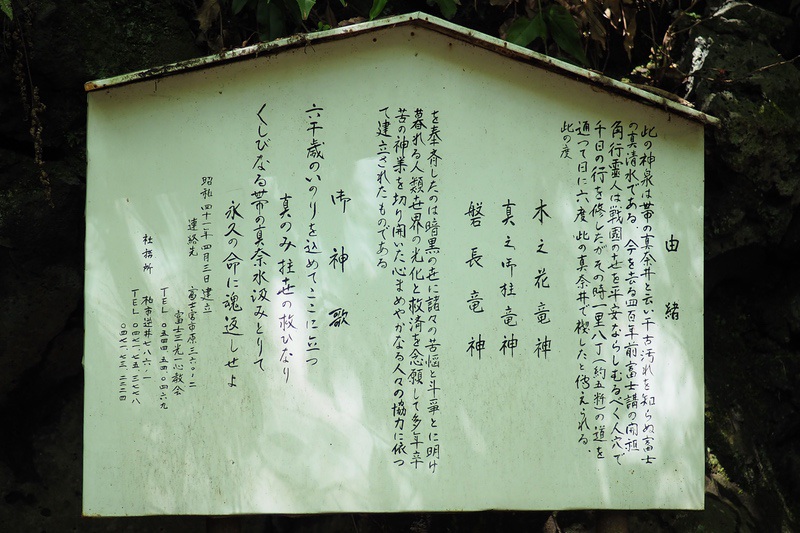 由緒
此の神泉は帯の真奈井と云い千古汚れを知らぬ富士
の真清水である 今を去る四百年前富士講の開祖
角行霊人は戦国の世を平安ならしむるべく人穴で
千日の行を修したがその時一里八丁(約五粁)の道を
通つて日に六度此の真奈井で禊したと伝えられる
此の度
木之花竜神
真之御柱竜神
磐長竜神
を奉斉したのは暗黒の世に諸々の苦悩と斗争とに明け
暮れる人類世界の光化と救済を念願して多年辛
苦の神業を切り開いた心まめやかなる人々の協力に依つ
て建立されたものである
御神歌
六千歳のいのりを込めてここに立つ
真のみ柱世の救ひなり
くしびなる帯の真奈水汲みとりて
永久の命に魂返しせよ
昭和四十一年四月三日建立
連絡先
富士宮市原三六〇ノ二
富士三光一心教会
TEL 〇五四四 五四 〇四六九
社務所
柏市逆井七八六ノ一
TEL